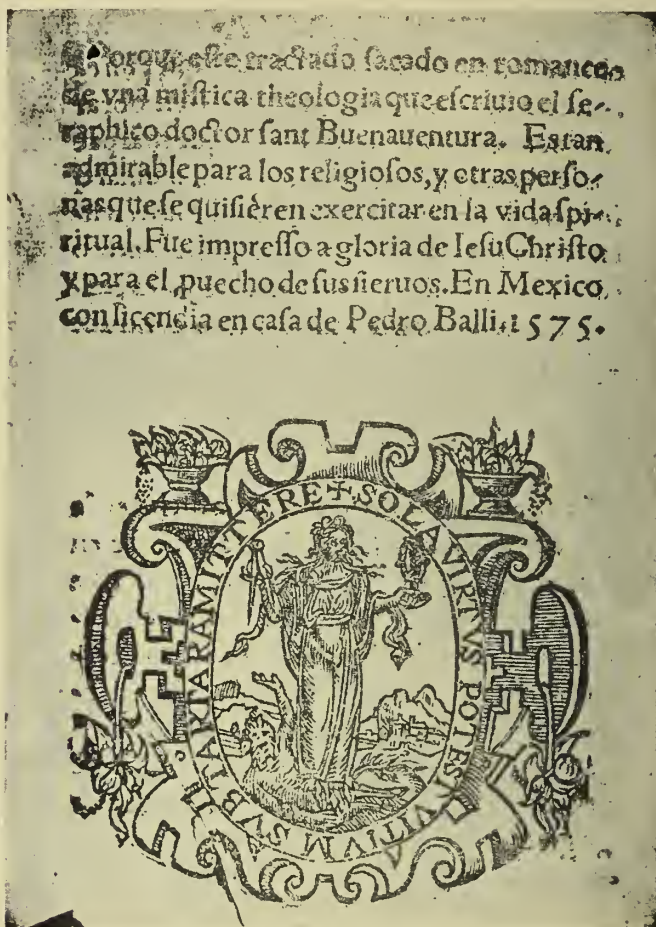 Porque este tractado sacado en romance
de vna mistica theologia que escriuio el se-
raphico doctor sant Buenauentura. Es tan
admirable para los religiosos, y otras perso-
nas que se quisieren exercitar en la vida spi-
ritual. Fue impresso a gloria de Iesu Christo
y para el puecho de sus sieruos. En Mexico
con licencia en casa de Pedro Balli. 1575.
✠ SOLA VIRTVS POTEST VITIVM SVB TARTARA MITTERE